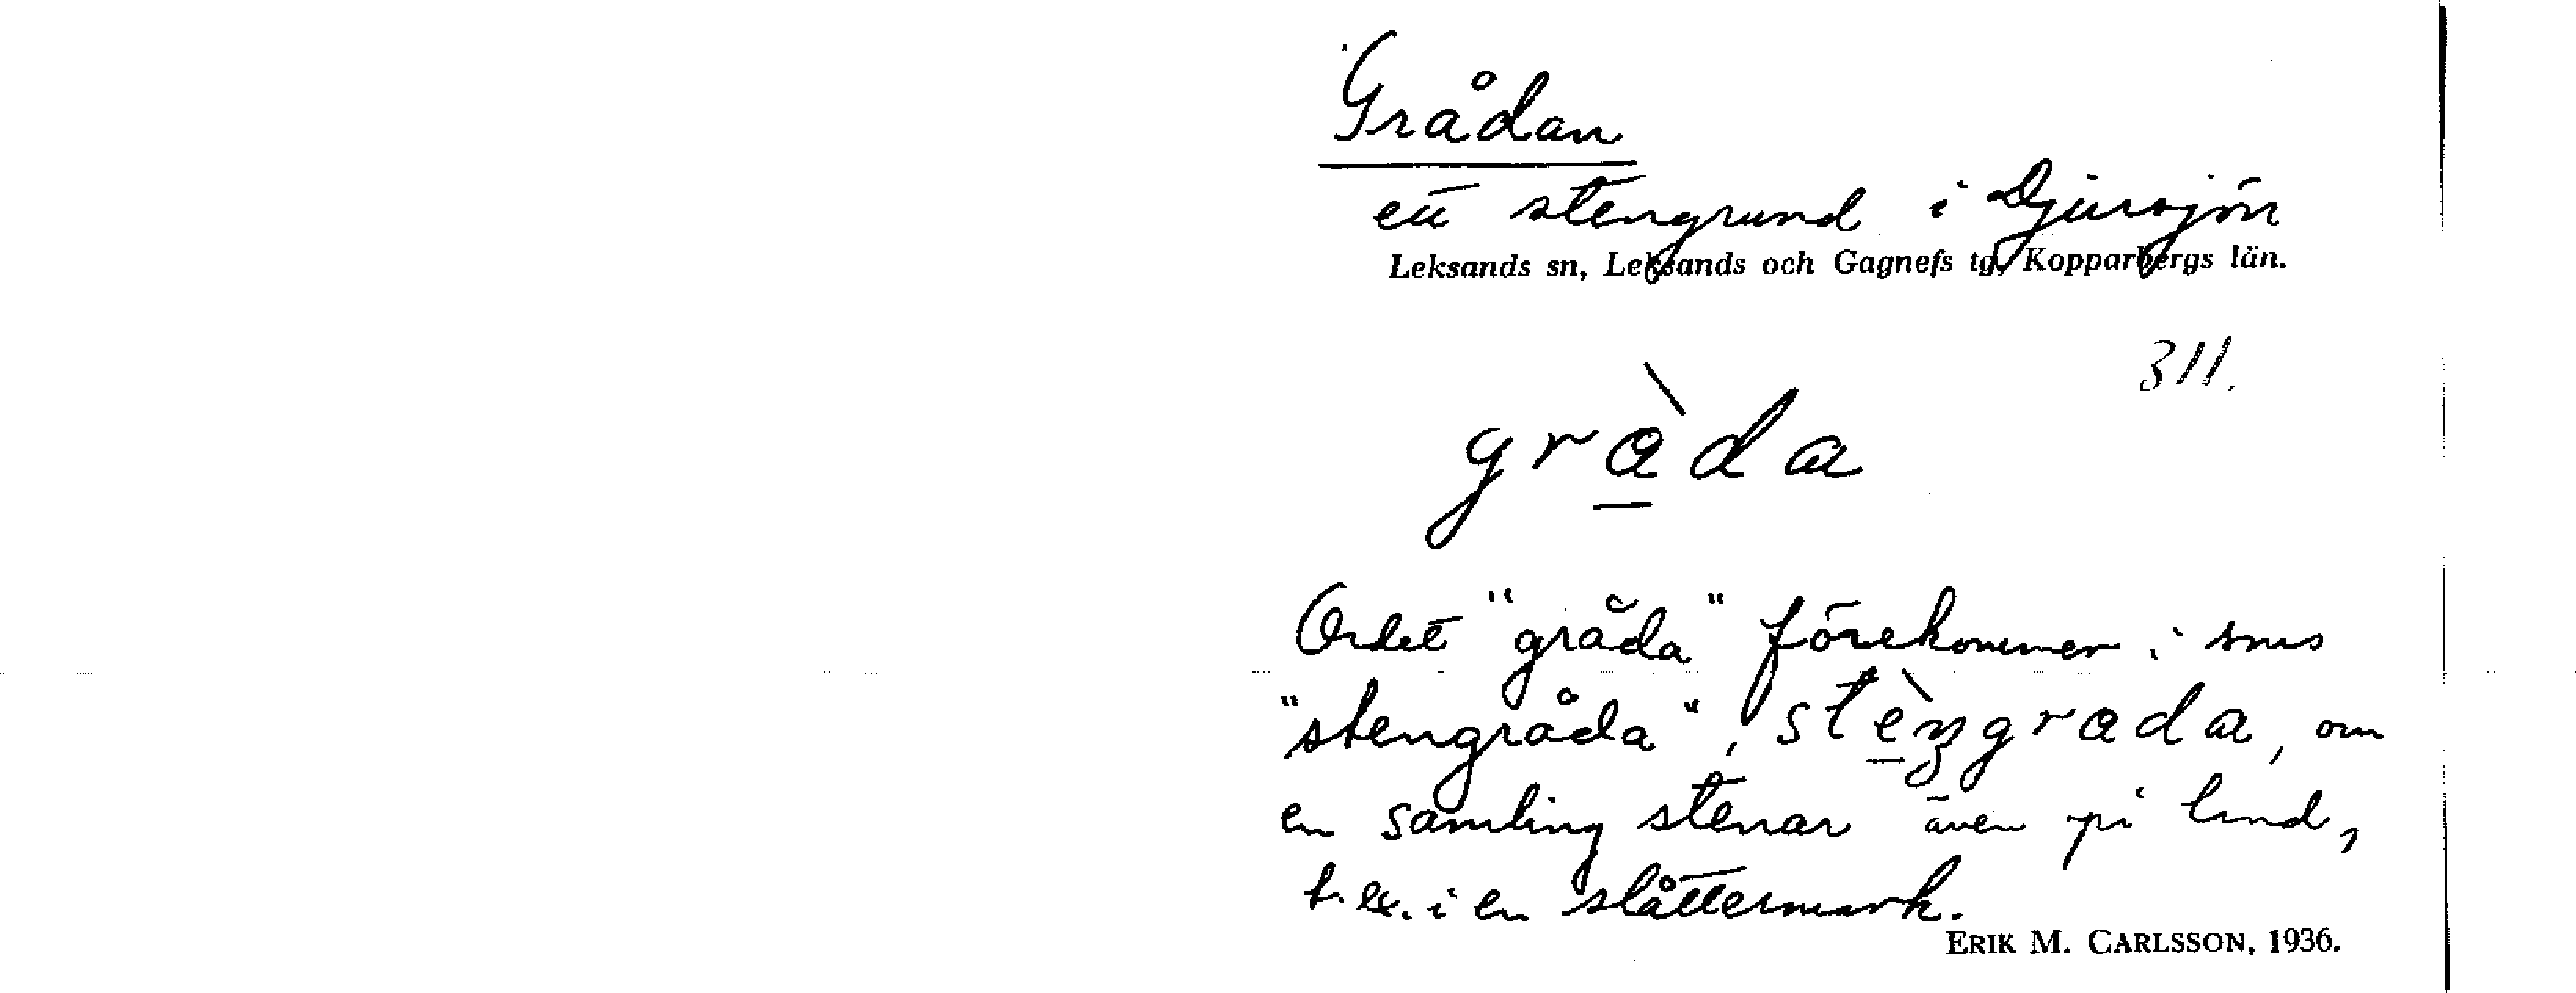 Grådan
ett stengrund i Djursjön
Leksands sn, Leksands och Gagnefs tg, Kopparbergs län.
311.
grà̱da
Ordet "gråda" förekommer i sms
"stengråda", stè̱ngrada, om
en samling stenar även på land,
t. ex. i en slåttermark.
ERIK M. CARLSSON, 1936.